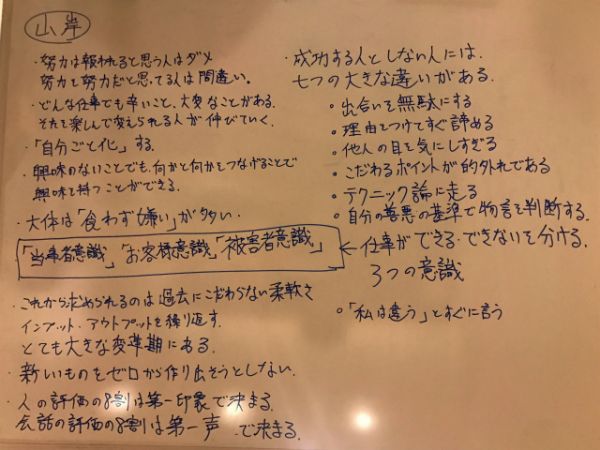 山岸
・努力は報われると思う人はダメ
努力を努力だと思ってる人は間違い。
・どんな仕事でも辛いこと、大変なことがある。
それを楽しんで変えられる人が伸びていく。
・「自分ごと化」する。
・興味のないことでも、何かと何かをつなげることで
興味を持つことができる。
・大体は「食わず嫌い」が多い。
「当事者意識」「お客様意識」「被害者意識」
・これから求められるのは過去にこだわらない柔軟さ
インプット・アウトプットを繰り返す。
とても大きな変準期にある。
・新しいものをゼロから作り出そうとしない。
・人の評価の8割は第一印象で決まる。
会話の評価の8割は第一声で決まる。
・成功する人としない人には、
七つの大きな違いがある。
・出会いを無駄にする
・理由をつけてすぐ諦める
・他人の目を気にしすぎる
・こだわるポイントが的外れである
・テクニック論に走る
・自分の善悪の基準で物言を判断する。
←仕事ができる・できないを分ける。
3つの意識
・「私は違う」とすぐに言う